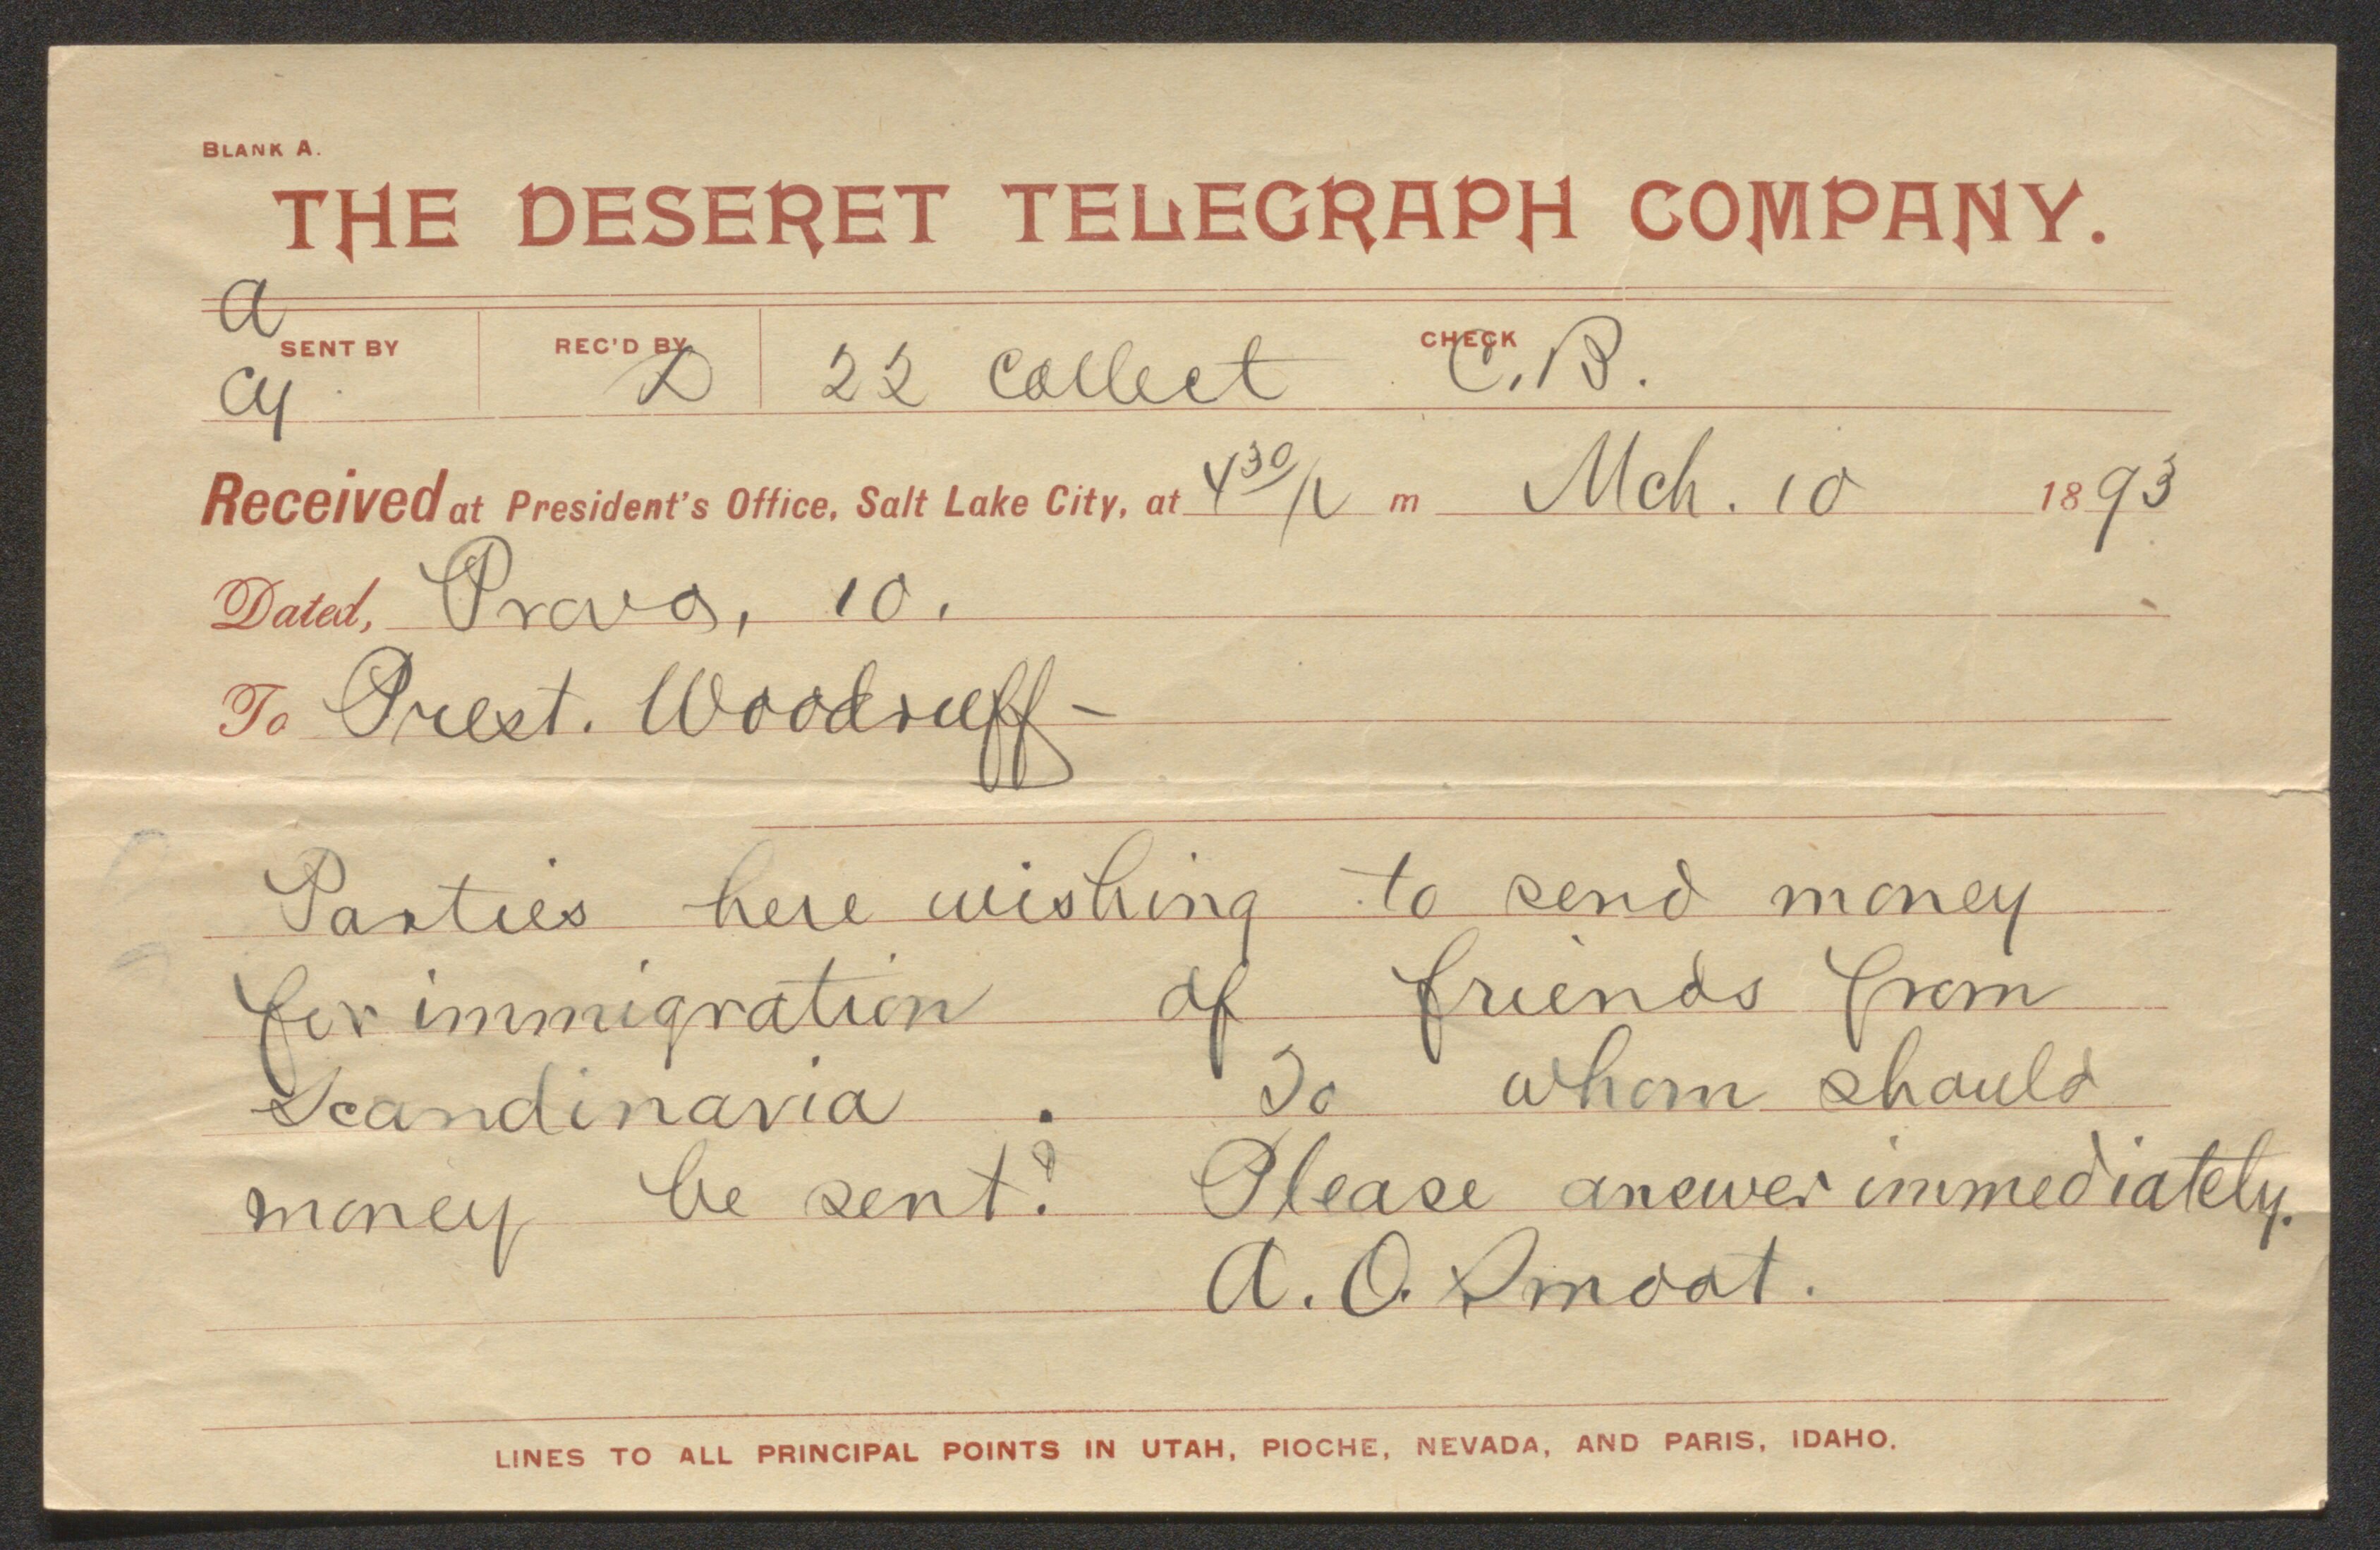 BLANK A.
THE DESERET TELEGRAPH COMPANY.
a
SENT BY REC'D BY CHECK
Cy D 22 Collect C.B.
Received at President's Office, Salt Lake City, at 4 30/P m Mch. 10 1893
Dated, Provo, 10.
To Prest. Woodruff-
Parties here wishing to send money
for immigration of friends from
Scandinavia . To whom should
money be sent? Please answer immediately.
A. O. Smoot.
LINES TO ALL PRINCIPAL POINTS IN UTAH, PIOCHE, NEVADA, AND PARIS, IDAHO.